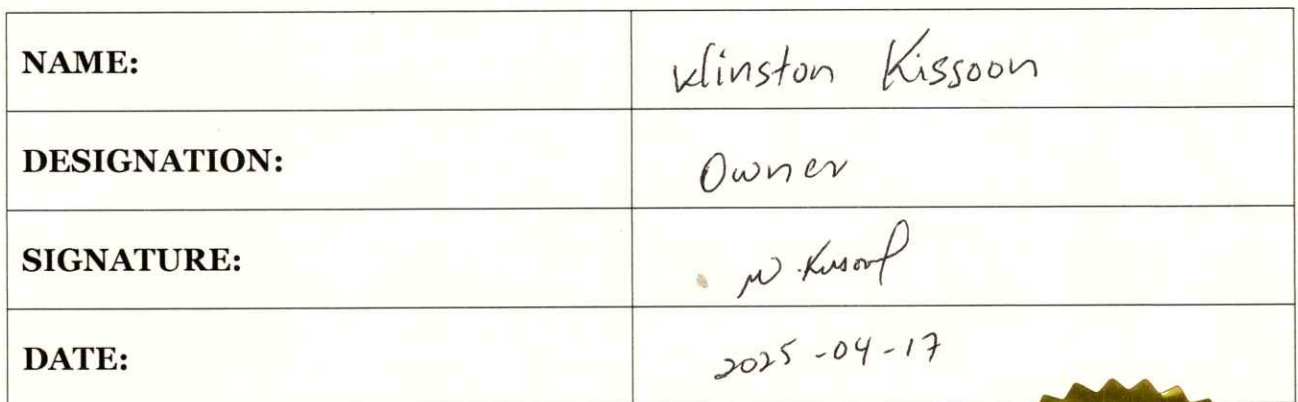 NAME: Winston Kissoon
DESIGNATION: Owner
SIGNATURE: W. Kissoon
DATE: 2025-04-17